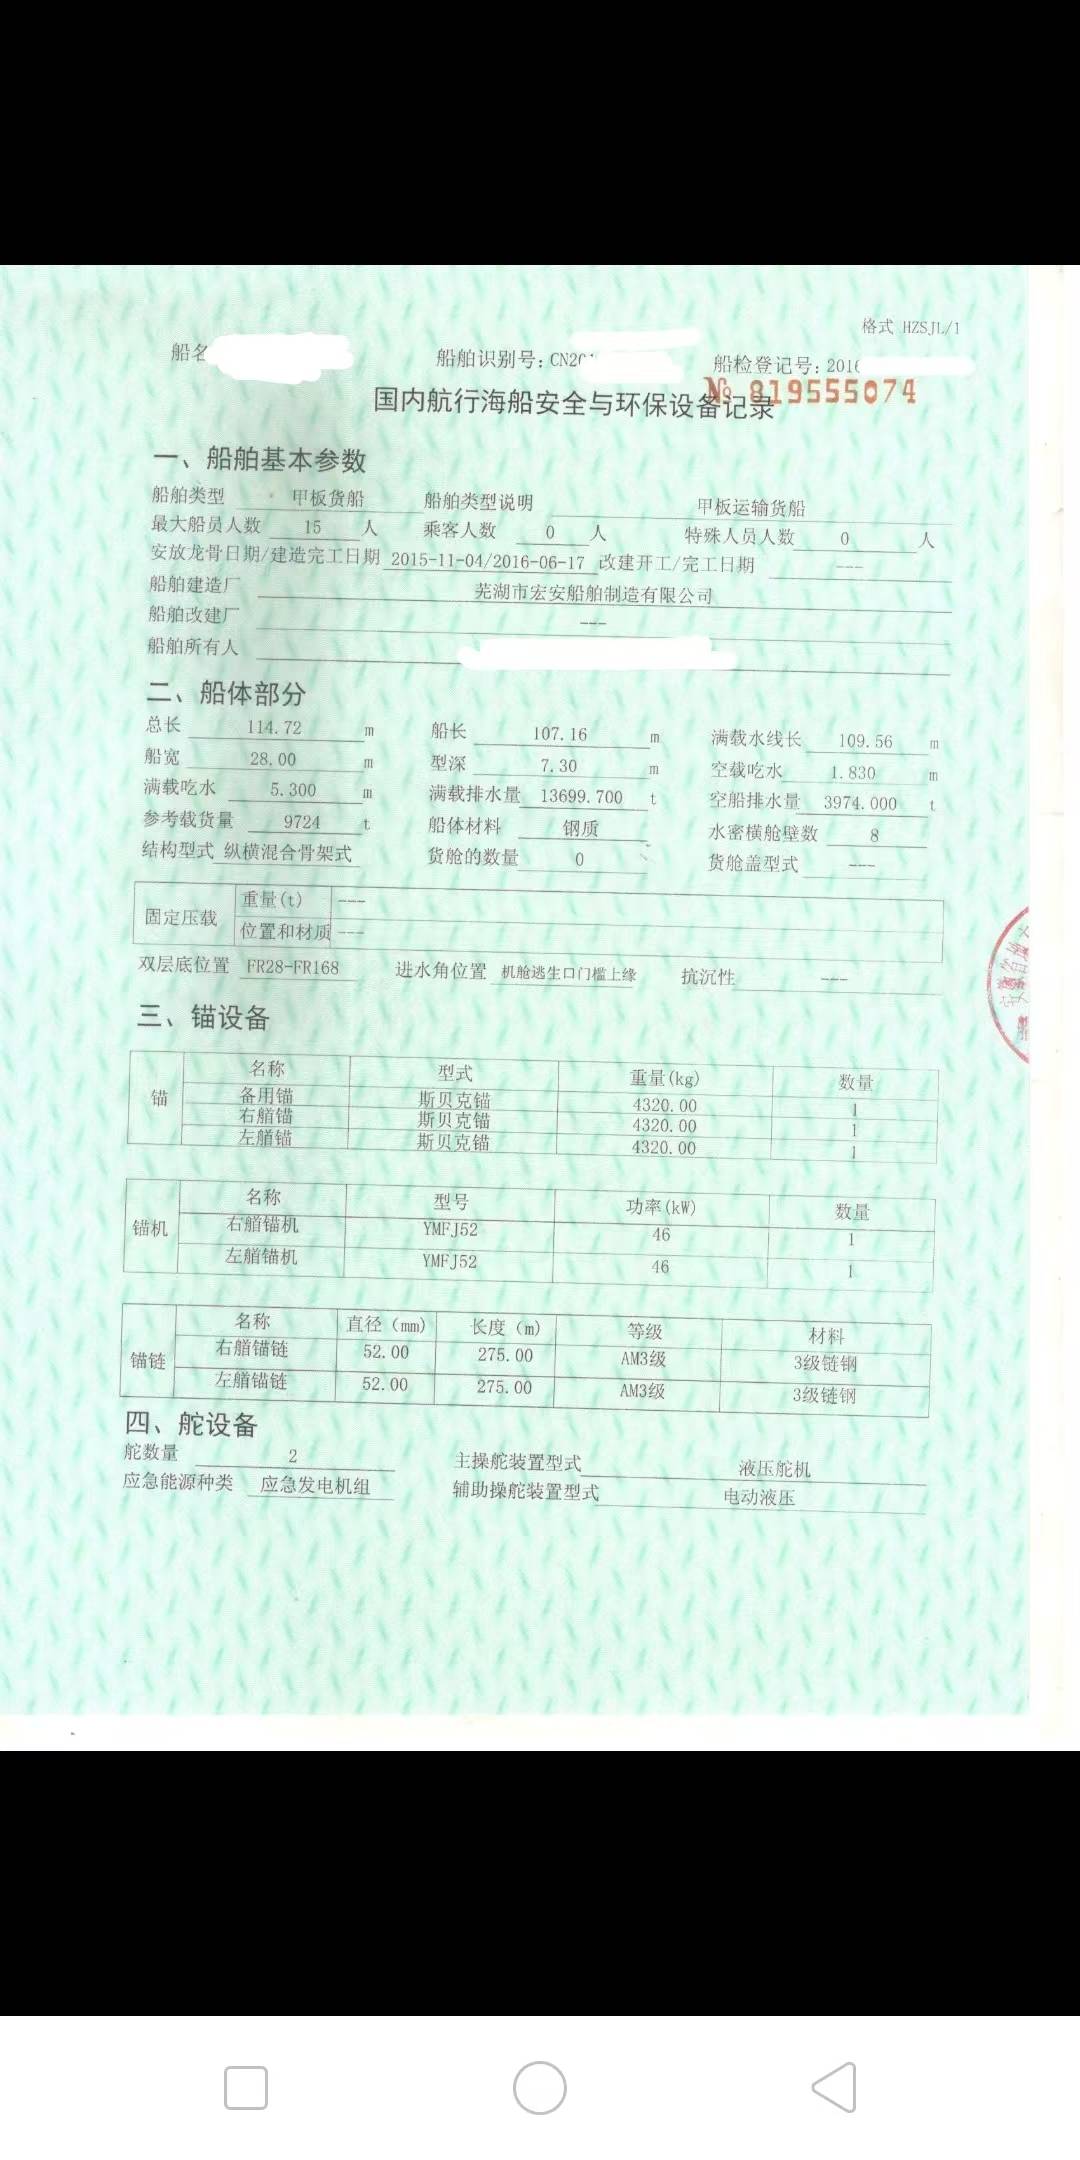 格式 HZSJL/1
船名 船舶识别号：CN20 船检登记号：2016
№ 819555074
国内航行海船安全与环保设备记录
一、船舶基本参数
船舶类型 甲板货船 船舶类型说明 甲板运输货船
最大船员人数 15 人 乘客人数 0 人 特殊人员人数 0 人
安放龙骨日期/建造完工日期 2015-11-04/2016-06-17 改建开工/完工日期 ---
船舶建造厂 芜湖市宏安船舶制造有限公司
船舶改建厂 ---
船舶所有人
二、船体部分
总长 114.72 m 船长 107.16 m 满载水线长 109.56 m
船宽 28.00 m 型深 7.30 m 空载吃水 1.830 m
满载吃水 5.300 m 满载排水量 13699.700 t 空船排水量 3974.000 t
参考载货量 9724 t 船体材料 钢质 水密横舱壁数 8
结构型式 纵横混合骨架式 货舱的数量 0 货舱盖型式 ---
固定压载 重量(t) ---
位置和材质 ---
双层底位置 FR28-FR168 进水角位置 机舱逃生口门槛上缘 抗沉性 ---
三、锚设备
锚 名称 型式 重量(kg) 数量
备用锚 斯贝克锚 4320.00 1
右艏锚 斯贝克锚 4320.00 1
左艏锚 斯贝克锚 4320.00 1
锚机 名称 型号 功率(kW) 数量
右艏锚机 YMFJ52 46 1
左艏锚机 YMFJ52 46 1
锚链 名称 直径（mm） 长度（m） 等级 材料
右艏锚链 52.00 275.00 AM3级 3级链钢
左艏锚链 52.00 275.00 AM3级 3级链钢
四、舵设备
舵数量 2 主操舵装置型式 液压舵机
应急能源种类 应急发电机组 辅助操舵装置型式 电动液压